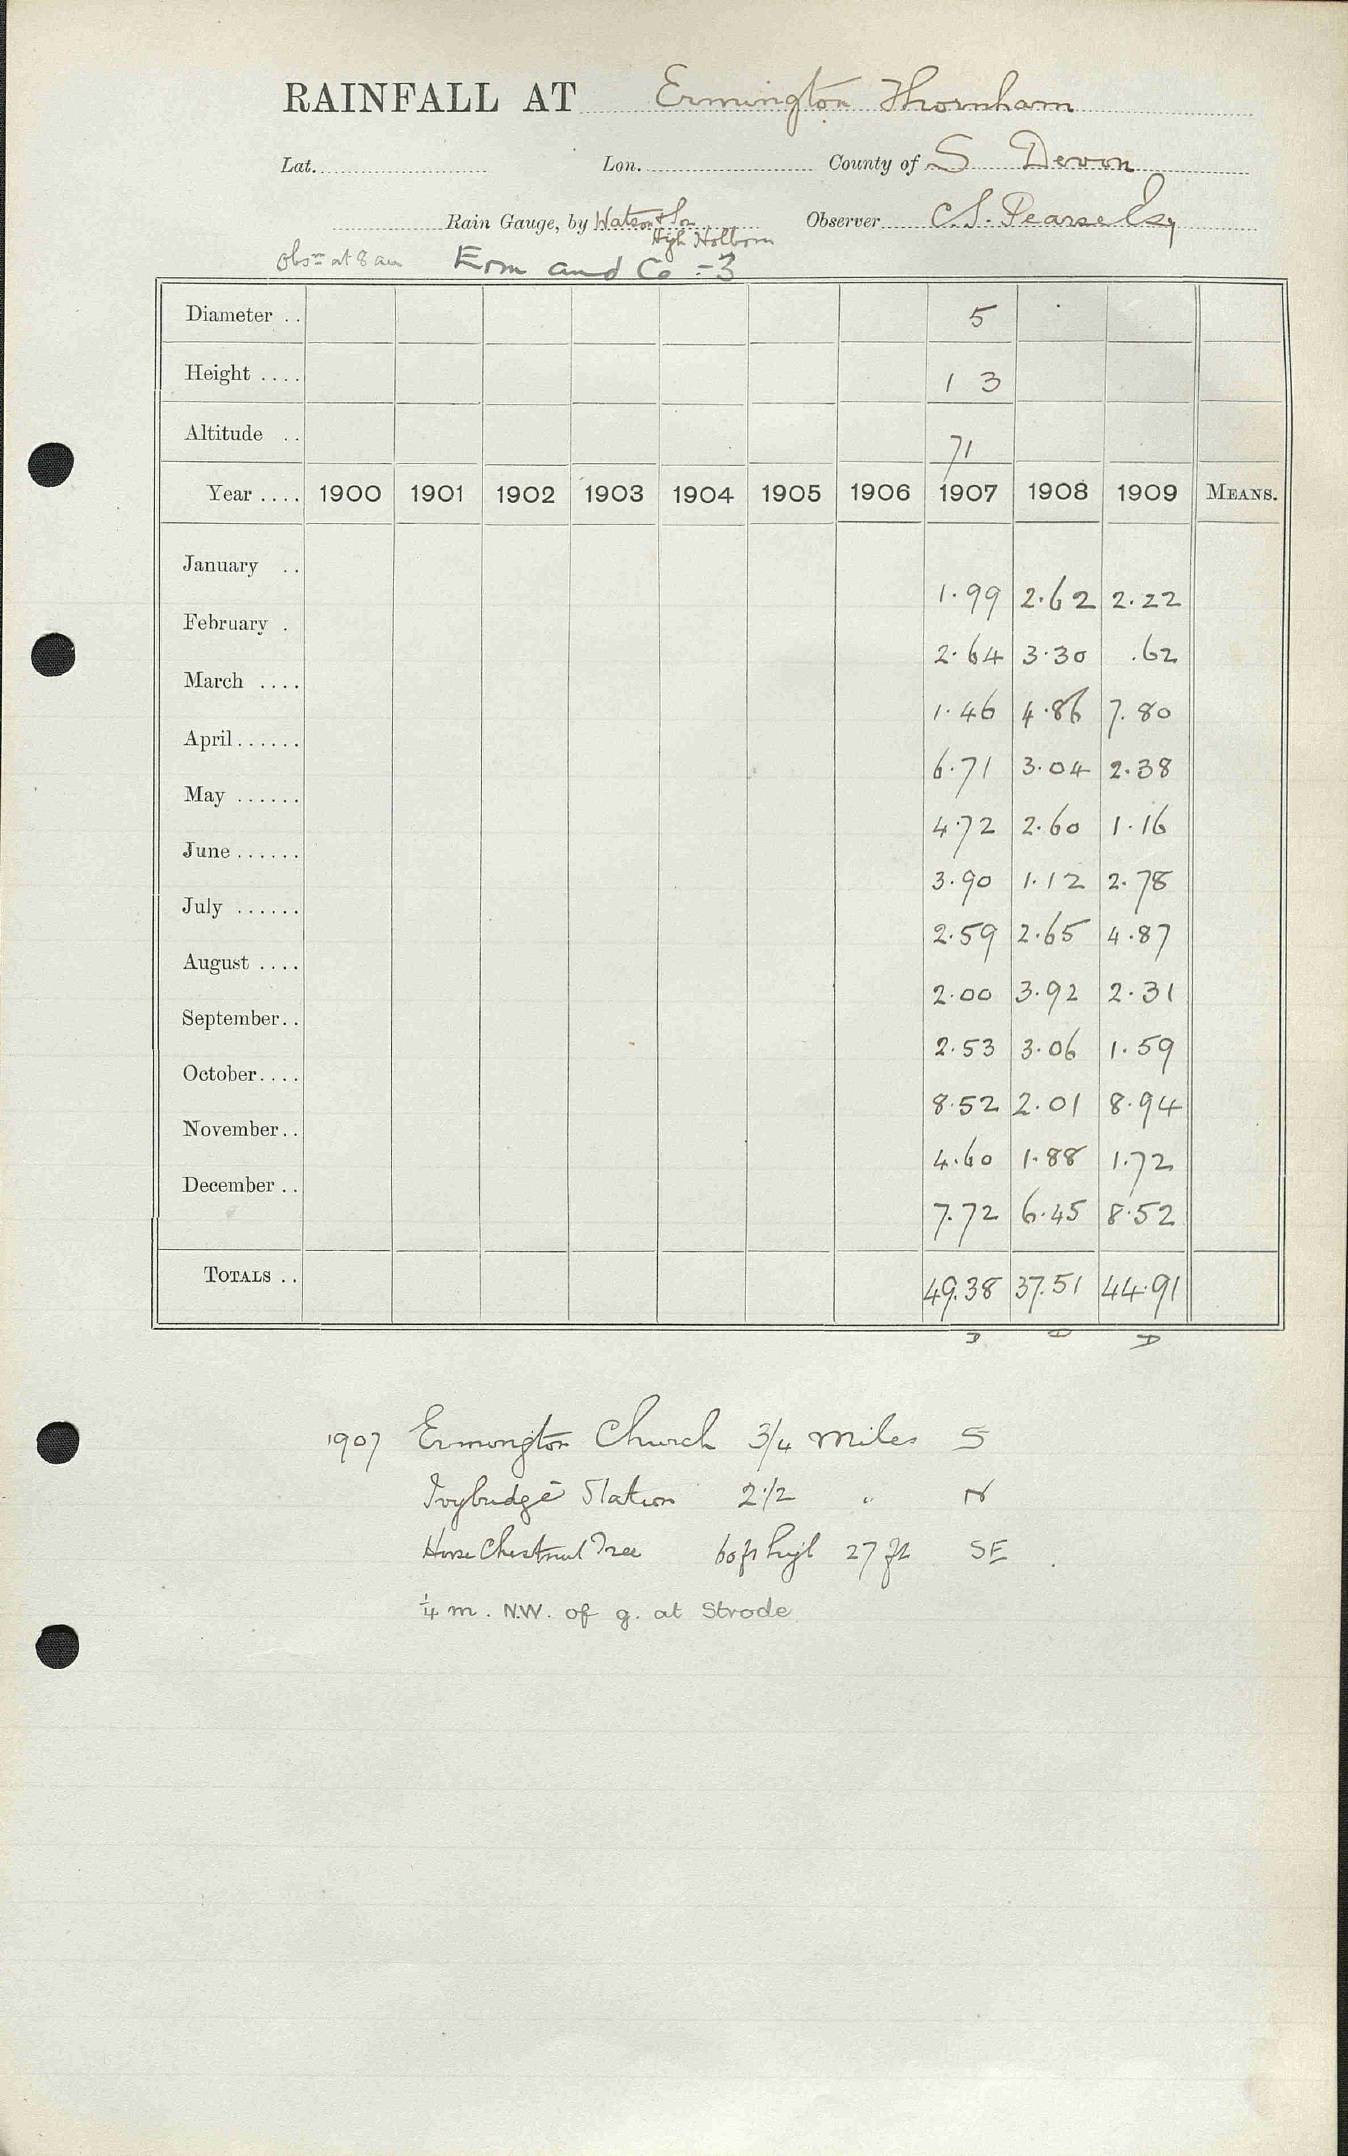 RAINFALL AT Ermington Thornham
Lat. Lon. County of S Devon
Rain Gauge, by Watson & Son High Holborn Observer C.S. Pearse Esq
obsn at 8 am Erm and Co - 3
Diameter .. 5
Height .... 1 3
Altitude .. 71
Year .... 1900 1901 1902 1903 1904 1905 1906 1907 1908 1909 MEANS.
January .. 1.99 2.62 2.22
February . 2.64 3.30 .62
March .... 1.46 4.86 7.80
April ...... 6.71 3.04 2.38
May ...... 4.72 2.60 1.16
June ...... 3.90 1.12 2.78
July ...... 2.59 2.65 4.87
August .... 2.00 3.92 2.31
September.. 2.53 3.06 1.59
October.... 8.52 2.01 8.94
November.. 4.60 1.88 1.72
December .. 7.72 6.45 8.52
TOTALS .. 49.38 37.51 44.91
D D D
1907 Ermington Church 3/4 miles S
Ivybridge Station 2 1/2 " N
Horse Chestnut Tree 60 ft high 27 ft SE
1/4 m. N.W. of g. at Strode